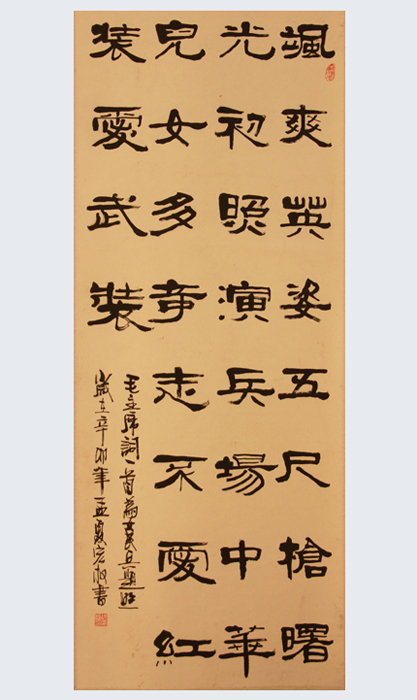 颯爽英姿五尺槍曙
光初照演兵場中華
兒女多奇志不愛紅
装愛武裝
毛主席詞一首為
歲在辛卯年孟夏書